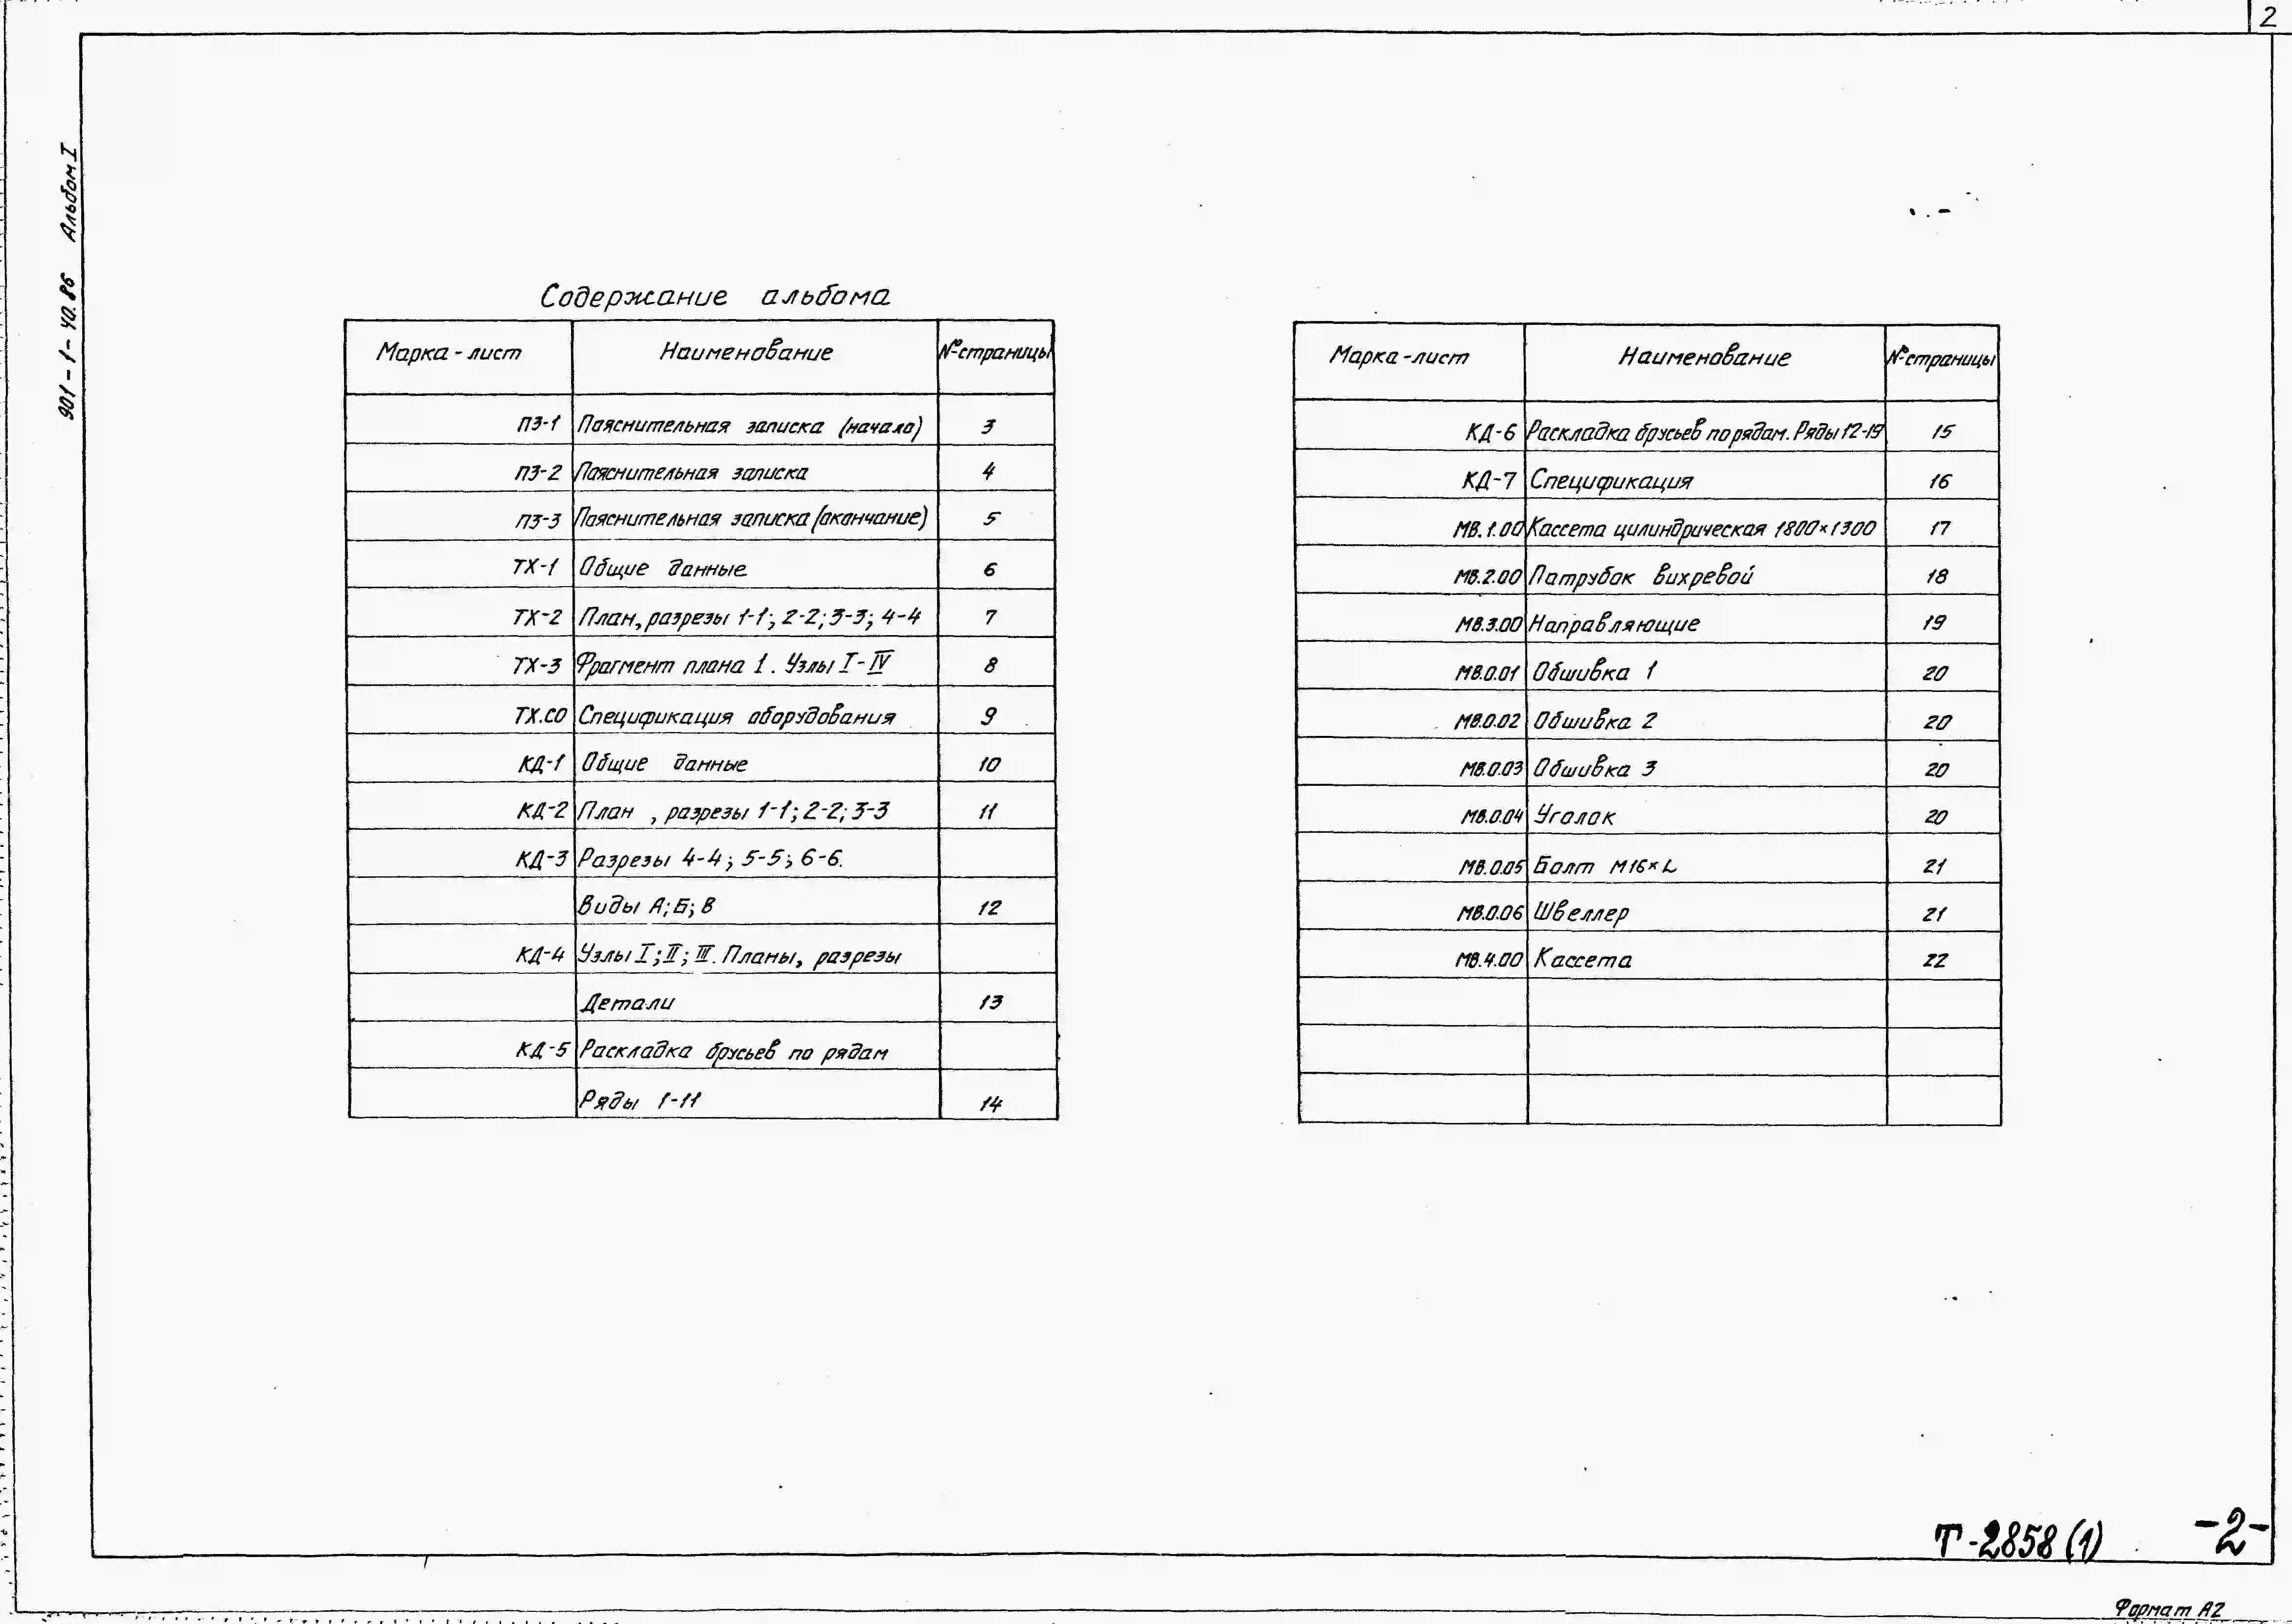 2
901-1-40.86 Альбом I
Содержание альбома
Марка - лист Наименование № страницы
ПЗ-1 Пояснительная записка (начало) 3
ПЗ-2 Пояснительная записка 4
ПЗ-3 Пояснительная записка (окончание) 5
ТХ-1 Общие данные 6
ТХ-2 План, разрезы 1-1; 2-2; 3-3; 4-4 7
ТХ-3 Фрагмент плана 1. Узлы I-IV 8
ТХ.СО Спецификация оборудования 9
КД-1 Общие данные 10
КД-2 План , разрезы 1-1; 2-2; 3-3 11
КД-3 Разрезы 4-4; 5-5; 6-6.
Виды А; Б; В 12
КД-4 Узлы I; II; III. Планы, разрезы
Детали 13
КД-5 Раскладка брусьев по рядам
Ряды 1-11 14
Марка - лист Наименование № страницы
КД-6 Раскладка брусьев по рядам. Ряды 12-19 15
КД-7 Спецификация 16
МВ.1.00 Кассета цилиндрическая 1800×1300 17
МВ.2.00 Патрубок вихревой 18
МВ.3.00 Направляющие 19
МВ.0.01 Обшивка 1 20
МВ.0.02 Обшивка 2 20
МВ.0.03 Обшивка 3 20
МВ.0.04 Уголок 20
МВ.0.05 Болт М16×L 21
МВ.0.06 Швеллер 21
МВ.4.00 Кассета 22
Т-2858 (1) -2-
Формат А2